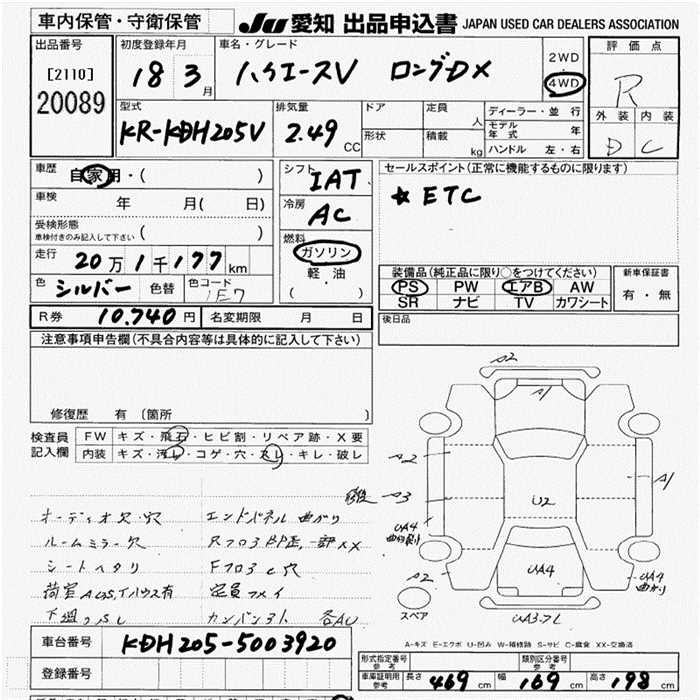 車内保管・守衛保管
JU 愛知 出品申込書 JAPAN USED CAR DEALERS ASSOCIATION
出品番号
[2110]
20089
初度登録年月
18 3月
車名・グレード
ハイエースV ロングDX
2WD
・
4WD
評価点
R
外装 内装
D C
型式
KR-KDH205V
排気量
2.49 CC
ドア
形状
定員 人
積載 kg
ディーラー・並行
モデル年式 年
ハンドル 左・右
車歴
自家用・( )
車検
年 月( 日)
受検形態
車検付きのみ記入して下さい ( )
走行
20万1千177km
色
シルバー 色替
色コード
1E7
シフト
IAT
冷房
AC
燃料
ガソリン
軽・油
( )
セールスポイント(正常に機能するものに限ります)
★ ETC
装備品(純正品に限り○をつけてください)
PS PW エアB AW
SR ナビ TV カワシート
新車保証書
有・無
R券 10.740円 名変期限 月 日
後日品
注意事項申告欄(不具合内容等は具体的に記入して下さい)
修復歴 有 (箇所 )
検査員記入欄
FW キズ・飛石・ヒビ割・リペア跡・X要
内装 キズ・汚レ・コゲ・穴・スレ・キレ・破レ
オーディオ欠・穴
ルームミラー穴
シートヘタリ
下廻りサビ
エンドパネル曲がり
A2
A1
A2
A3
A1
U2
UA4
曲がり
A2
UA4
UA4
曲がり
スペア
A-キズ E-エクボ U-凹み W-補修跡 S-サビ C-腐食 XX-交換済
車台番号 KDH205-5003920
登録番号
形式指定番号
参考
類別区分番号
参考
車庫証明用
参考
長さ 469 cm 幅 169 cm 高さ 198 cm